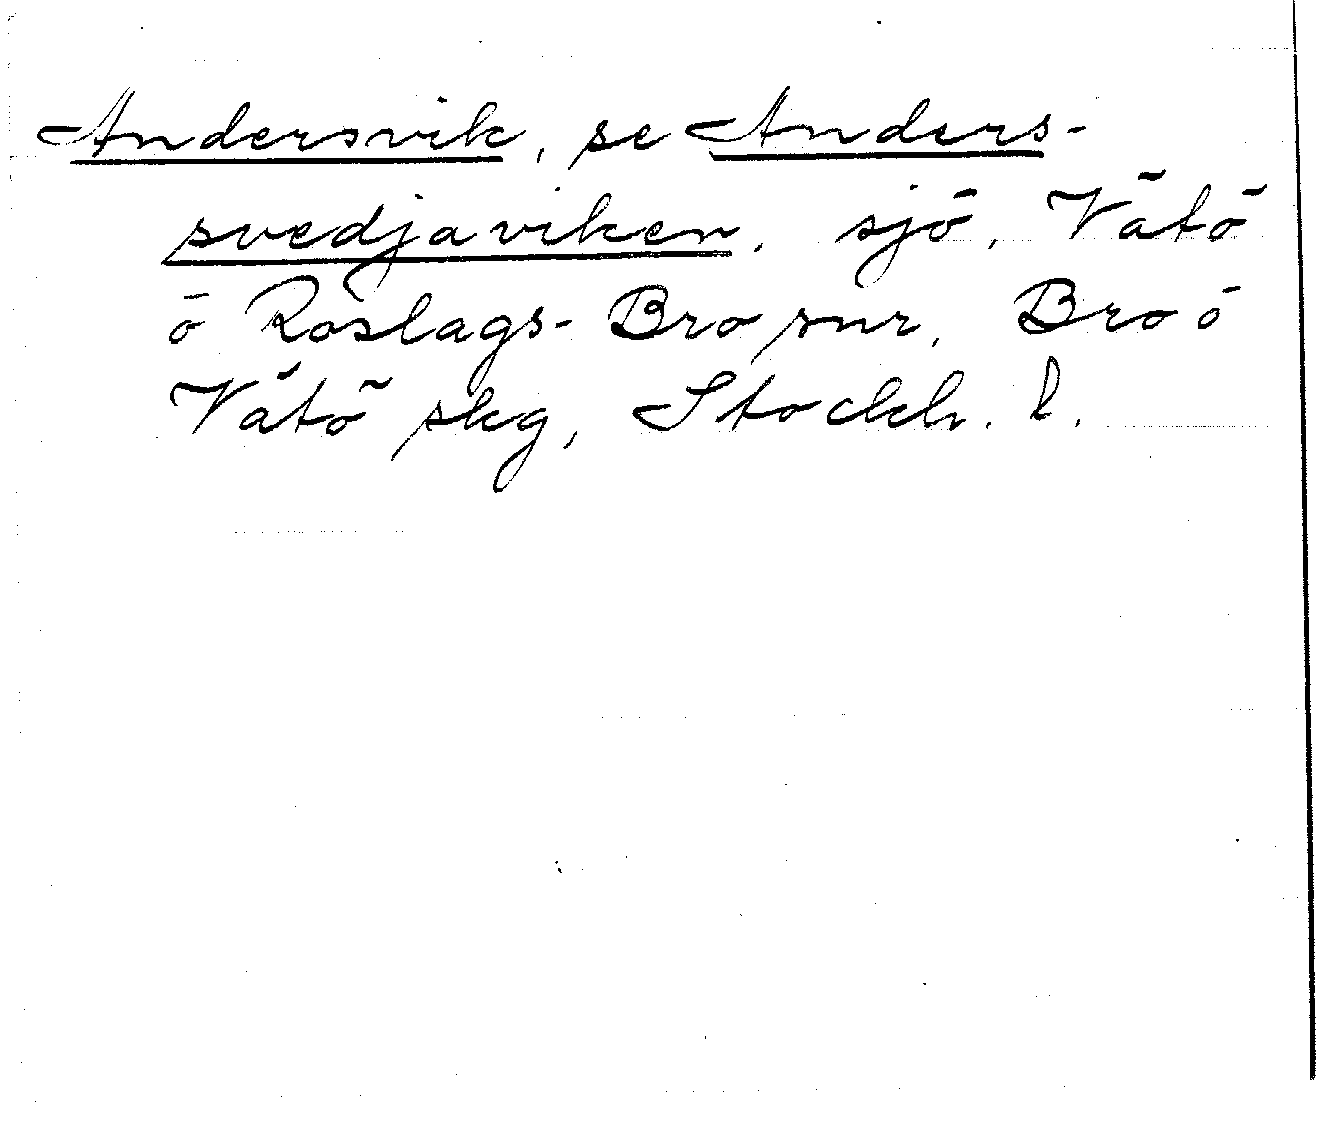 Andersvik, se Anders-
svedjaviken, sjö, Vätö
o Roslags-Bro snr, Bro o
Vätö skg, Stockh. l.